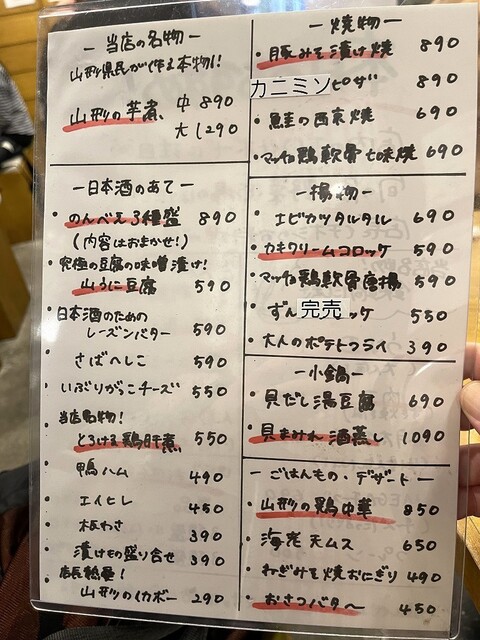 ― 当店の名物 ―
山形県民が作る本物!
山形の芋煮 中 890
大 1290
― 日本酒のあて ―
・のんべえ3種盛 890
(内容はおまかせ!)
・究極の豆腐の味噌漬け!
山うに豆腐 590
・日本酒のための
レーズンバター 590
・さばへしこ 590
・いぶりがっこチーズ 550
当店名物!
・とろける鶏肝煮 550
・鴨ハム 490
・エイヒレ 450
・板わさ 390
・漬けもの盛り合せ 390
店長熱量!
・山形のイカボー 290
― 焼物 ―
・豚みそ漬け焼 890
カニミソピザ 890
・鮭の西京焼 690
・マッチョ鶏軟骨七味焼 690
― 揚物 ―
・エビカツタルタル 690
・カキクリームコロッケ 590
・マッチョ鶏軟骨唐揚 590
・ずん 完売 ッケ 550
・大人のポテトフライ 390
― 小鍋 ―
・貝だし湯豆腐 690
・貝まみれ酒蒸し 1090
― ごはんもの・デザート ―
・山形の鶏中華 850
・海老天ムス 650
・ねぎみそ焼おにぎり 490
・おさつバタ〜 450